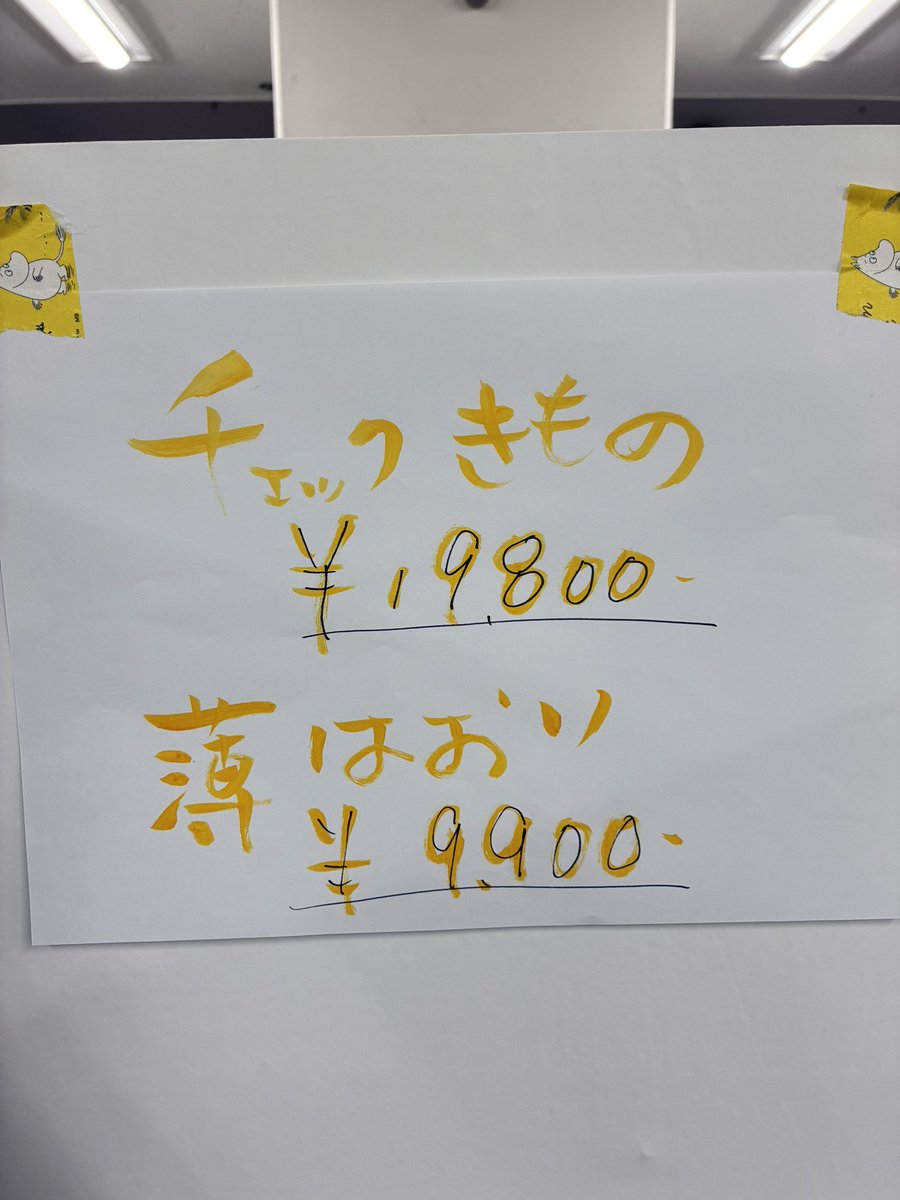 チェック きもの
¥19,800-
薄はおり
¥9,900-